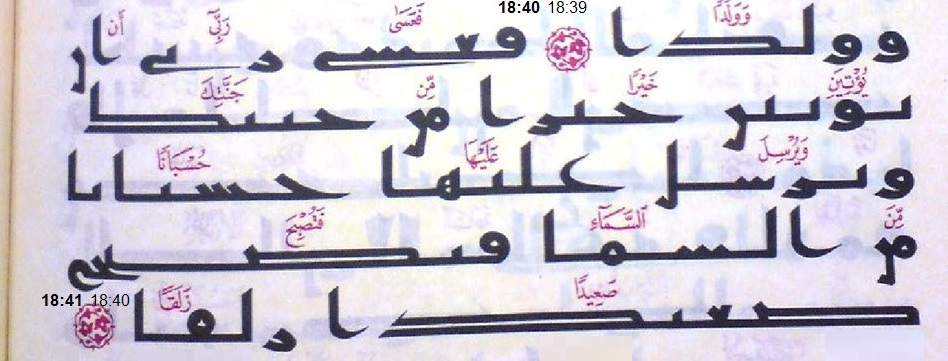 18:40 18:39
وَوَلَدًا فَعَسَىٰ رَبِّىٓ أَن
وولدا فعسى ربى ان
يُؤْتِيَنِ خَيْرًا مِّن جَنَّتِكَ
يوتين خيرا من جنتك
وَيُرْسِلَ عَلَيْهَا حُسْبَانًا
ويرسل عليها حسبانا
مِّنَ ٱلسَّمَآءِ فَتُصْبِحَ
من السما فتصبح
صَعِيدًا زَلَقًا 18:41 18:40
صعيدا زلقا